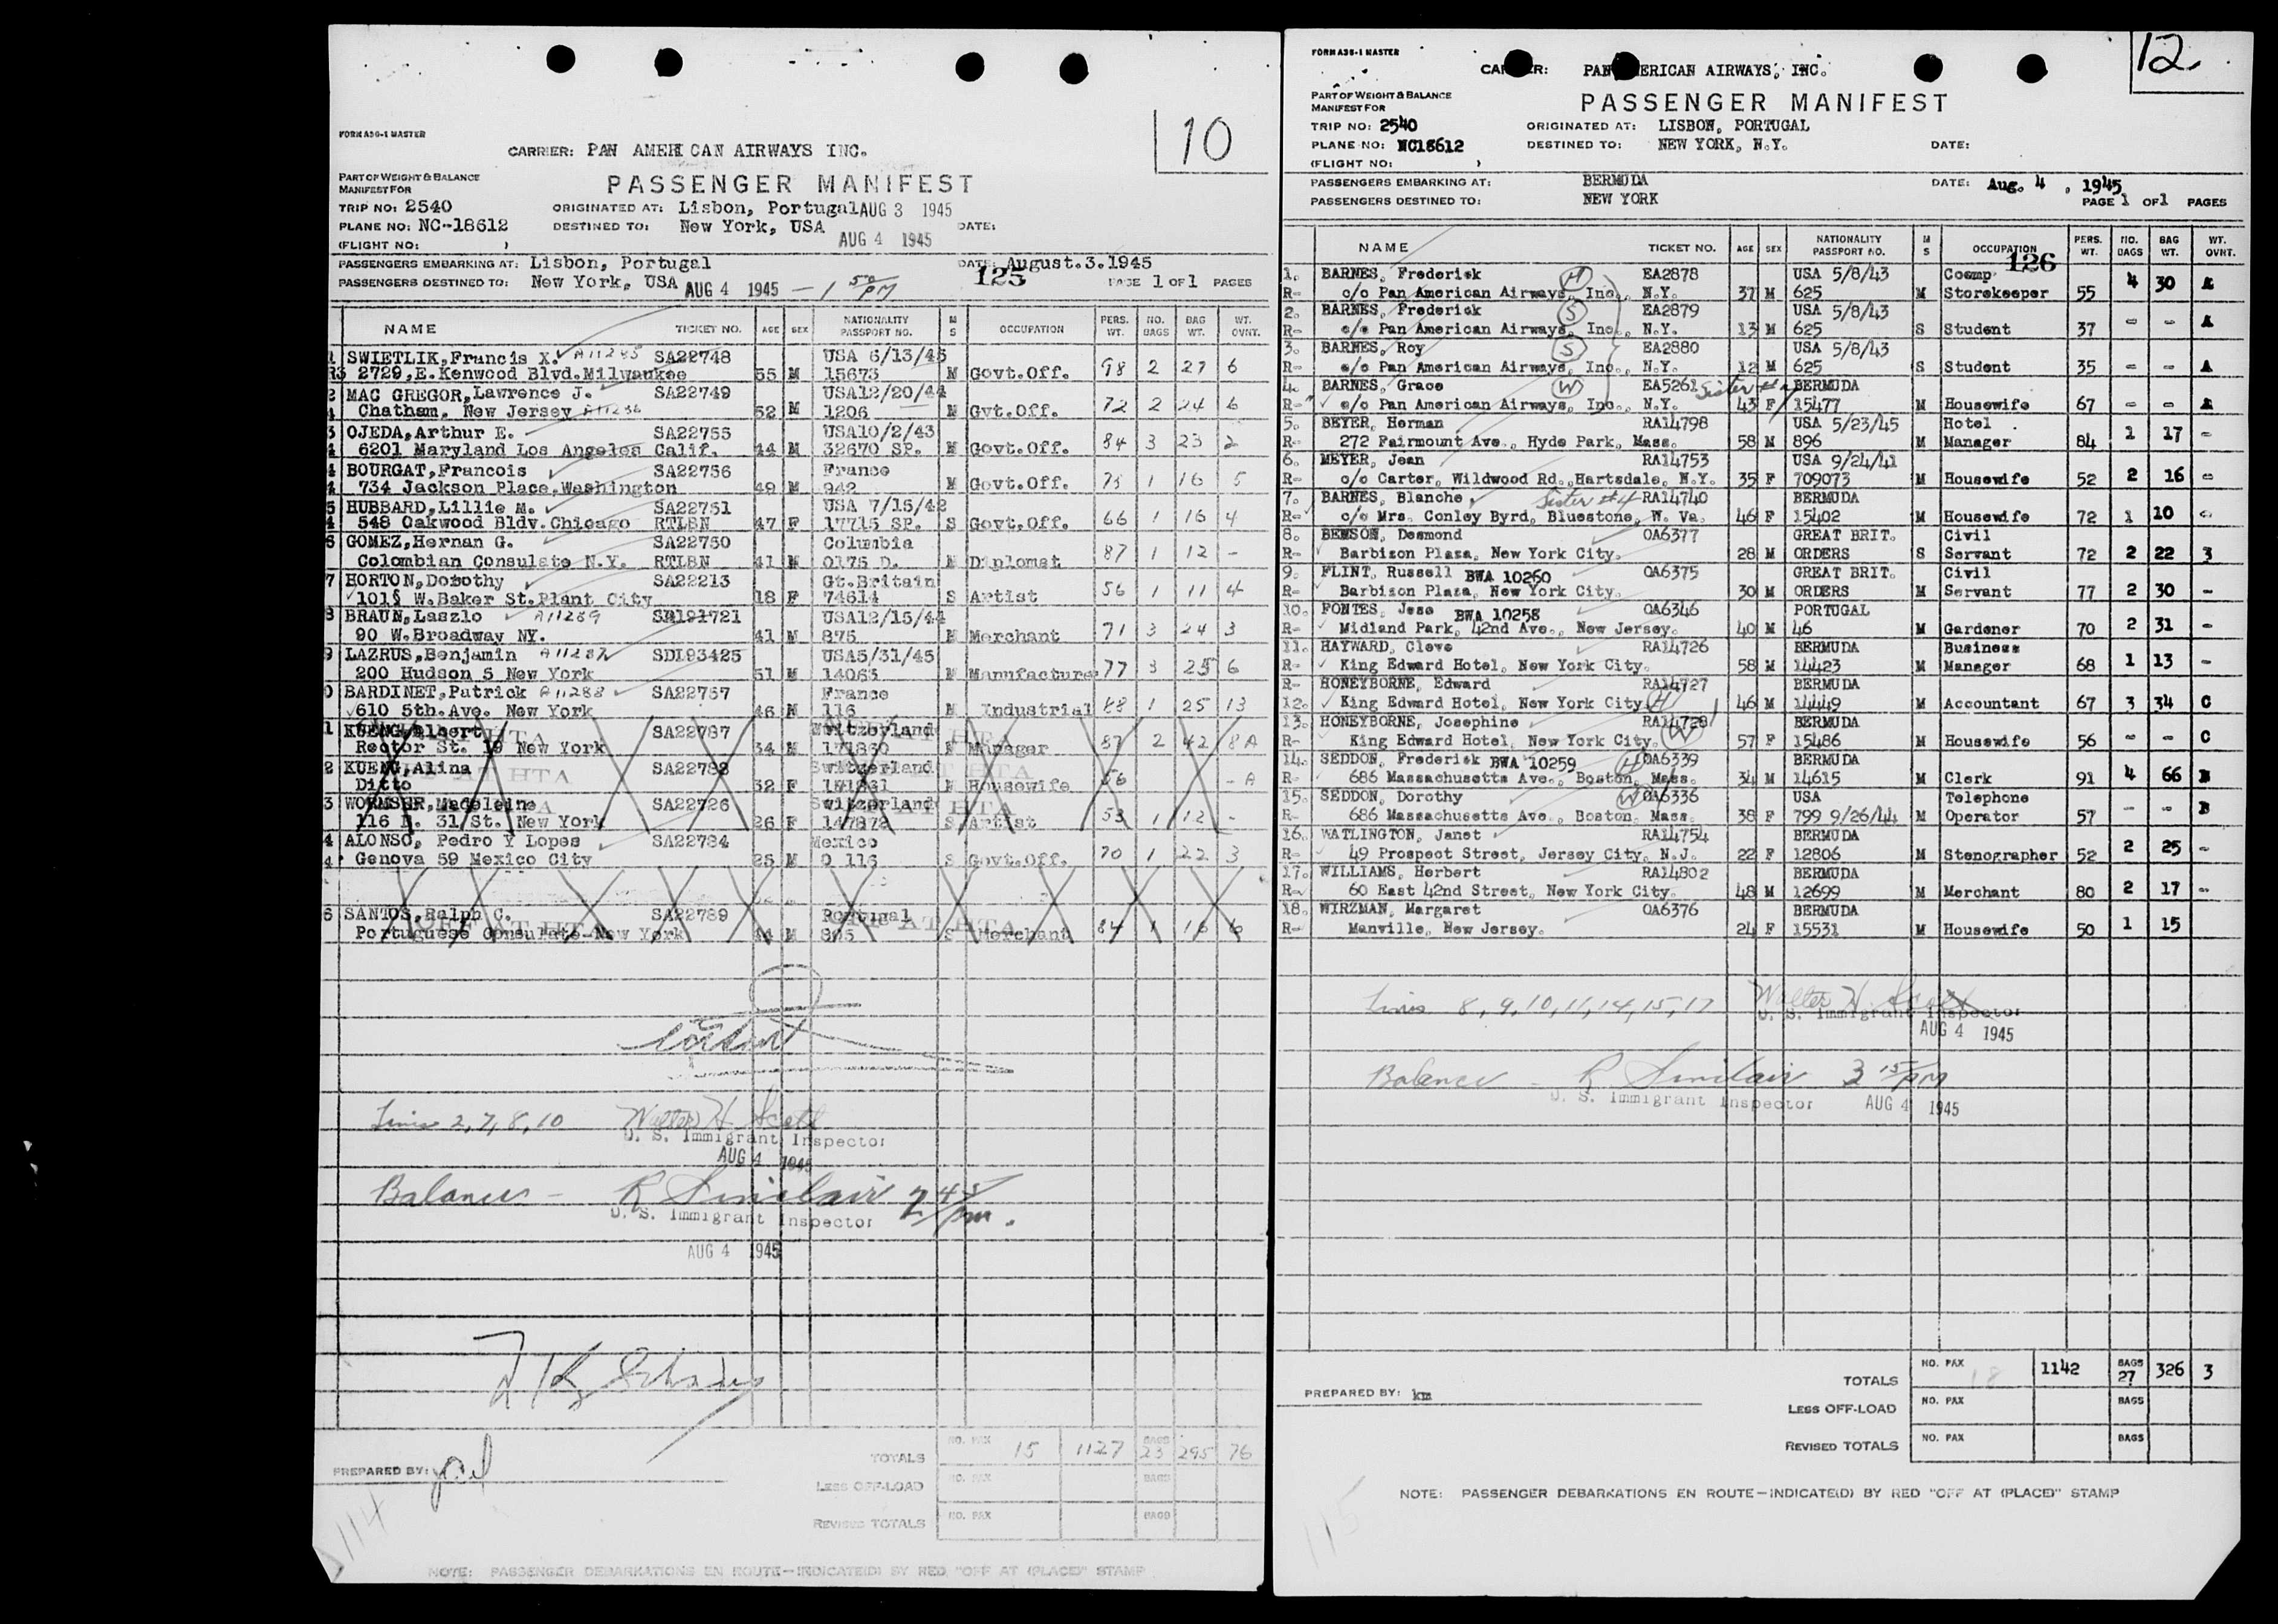 10
FORM A36-1 MASTER
CARRIER: PAN AMERICAN AIRWAYS INC.
PART OF WEIGHT & BALANCE
MANIFEST FOR
PASSENGER MANIFEST
TRIP NO: 2540 ORIGINATED AT: Lisbon, Portugal AUG 3 1945
PLANE NO: NC-18612 DESTINED TO: New York, USA AUG 4 1945 DATE:
(FLIGHT NO: )
PASSENGERS EMBARKING AT: Lisbon, Portugal DATE: August.3.1945
PASSENGERS DESTINED TO: New York, USA AUG 4 1945 — 1 50 PM 125 PAGE 1 OF 1 PAGES
NAME TICKET NO. AGE SEX NATIONALITY PASSPORT NO. M S OCCUPATION PERS. WT. NO. BAGS BAG WT. WT. OVHT.
SWIETLIK,Francis X. A11285 SA22748 USA 6/13/45
2729,E.Kenwood Blvd.Milwaukee 55 M 15673 M Govt.Off. 98 2 27 6
2 MAC GREGOR,Lawrence J. SA22749 USA12/20/44
Chatham, New Jersey A11286 52 M 1206 M Gvt.Off. 72 2 24 6
3 OJEDA,Arthur E. SA22755 USA10/2/43
6201 Maryland Los Angeles Calif. 44 M 32670 SP. M Govt.Off. 84 3 23 2
4 BOURGAT,Francois SA22756 France
734 Jackson Place,Washington 49 M 942 M Govt.Off. 75 1 16 5
5 HUBBARD,Lillie M. SA22751 USA 7/15/42
548 Oakwood Bldv.Chicago RTLBN 47 F 17715 SP. S Govt.Off. 66 1 16 4
6 GOMEZ,Hernan G. SA22750 Columbia
Colombian Consulate N.Y. RTLBN 41 M 0175 D. M Diplomat 87 1 12 -
7 HORTON,Dorothy SA22213 Gt.Britain
101§ W.Baker St.Plant City 18 F 74614 S Artist 56 1 11 4
8 BRAUN,Laszlo A11289 SR191721 USA12/15/44
90 W.Broadway NY. 41 M 875 M Merchant 71 3 24 3
9 LAZRUS,Benjamin A11287 SD193425 USA5/31/45
200 Hudson S New York 51 M 14063 M Manufacture 77 3 25 6
0 BARDINET,Patrick A11288 SA22757 France
610 5th.Ave. New York 46 M 116 M Industrial 88 1 25 13
1 KUENG,Albert SA22787 Switzerland
Rector St. 19 New York 34 M 171860 M Manager 87 2 42 8 A
2 KUENG,Alina SA22788 Switzerland
Ditto 32 F 171861 M Housewife 56 - A
3 WORMSER,Madeleine SA22726 Switzerland
116 E. 31/St. New York 26 F 147872 S Artist 53 1 12 -
4 ALONSO, Pedro Y Lopes SA22784 Mexico
Genova 59 Mexico City 25 M O 116 S Govt.Off. 70 1 22 3
6 SANTOS,Ralph C. SA22789 Portugal
Portuguese Consulate New York 44 M 895 S Merchant 84 1 16 6
Lines 2, 7, 8, 10 Walter H. Scott
U. S. Immigrant Inspector
AUG 4 1945
Balance - R Sinclair 2 45 pm.
U. S. Immigrant Inspector
AUG 4 1945
TOTALS NO. PAX 15 1127 BAGS 23 295 76
PREPARED BY:
LESS OFF-LOAD NO. PAX BAGS
REVISED TOTALS NO. PAX BAGS
114
NOTE: PASSENGER DEBARKATIONS EN ROUTE—INDICATE(D) BY RED "OFF AT (PLACE)" STAMP
12
FORM A36-1 MASTER
CARRIER: PAN AMERICAN AIRWAYS, INC.
PART OF WEIGHT & BALANCE
MANIFEST FOR
PASSENGER MANIFEST
TRIP NO: 2540 ORIGINATED AT: LISBON, PORTUGAL
PLANE NO: NC18612 DESTINED TO: NEW YORK, N.Y. DATE:
(FLIGHT NO: )
PASSENGERS EMBARKING AT: BERMUDA DATE: Aug. 4, 1945
PASSENGERS DESTINED TO: NEW YORK PAGE 1 OF 1 PAGES
NAME TICKET NO. AGE SEX NATIONALITY PASSPORT NO. M S OCCUPATION PERS. WT. NO. BAGS BAG WT. WT. OVHT.
126
1. BARNES, Frederick H EA2878 USA 5/8/43 Coemp
R- c/o Pan American Airways, Inc., N.Y. 37 M 625 M Storekeeper 55 4 30 A
2. BARNES, Frederick S EA2879 USA 5/8/43
R- c/o Pan American Airways, Inc., N.Y. 13 M 625 S Student 37 - - A
3. BARNES, Roy S EA2880 USA 5/8/43
R- c/o Pan American Airways, Inc., N.Y. 12 M 625 S Student 35 - - A
4. BARNES, Grace W EA5261 Sister #7 BERMUDA
R- c/o Pan American Airways, Inc., N.Y. 43 F 15477 M Housewife 67 - - A
5. BEYER, Herman RA14798 USA 5/23/45 Hotel
R- 272 Fairmount Ave., Hyde Park, Mass. 58 M 896 M Manager 84 1 17 -
6. MEYER, Jean RA14753 USA 9/24/41
R- c/o Carter, Wildwood Rd.,Hartsdale, N.Y. 35 F 709073 M Housewife 52 2 16 -
7. BARNES, Blanche Sister #4 RA14740 BERMUDA
R- c/o Mrs. Conley Byrd, Bluestone, W. Va. 46 F 15402 M Housewife 72 1 10 -
8. BEMSON, Desmond OA6377 GREAT BRIT. Civil
R- Barbizon Plaza, New York City. 28 M ORDERS S Servant 72 2 22 3
9. FLINT, Russell BWA 10260 OA6375 GREAT BRIT. Civil
R- Barbizon Plaza, New York City. 30 M ORDERS M Servant 77 2 30 -
10. FONTES, Jese BWA 10258 OA6346 PORTUGAL
R- Midland Park, 42nd Ave., New Jersey. 40 M 46 M Gardener 70 2 31 -
11. HAYWARD, Cleve RA14726 BERMUDA Business
R- King Edward Hotel, New York City. 58 M 14423 M Manager 68 1 13 -
R- HONEYBORNE, Edward RA14727 BERMUDA
12. King Edward Hotel, New York City H 46 M 14449 M Accountant 67 3 34 C
13. HONEYBORNE, Josephine RA14728 BERMUDA
R- King Edward Hotel, New York City. W 57 F 15486 M Housewife 56 - - C
14. SEDDON, Frederick BWA 10259 H OA6339 BERMUDA
R- 686 Massachusetts Ave., Boston, Mass. 34 M 14615 M Clerk 91 4 66 B
15. SEDDON, Dorothy W OA6336 USA Telephone
R- 686 Massachusetts Ave., Boston, Mass. 38 F 799 9/26/44 M Operator 57 - - B
16. WATLINGTON, Janet RA14754 BERMUDA
R- 49 Prospect Street, Jersey City, N.J. 22 F 12806 M Stenographer 52 2 25 -
17. WILLIAMS, Herbert RA14802 BERMUDA
R- 60 East 42nd Street, New York City. 48 M 12699 M Merchant 80 2 17 -
18. WIRZMAN, Margaret OA6376 BERMUDA
R- Manville, New Jersey. 24 F 15531 M Housewife 50 1 15
Lines 8, 9, 10, 11, 14, 15, 17 Walter H. Scott
U. S. Immigrant Inspector
AUG 4 1945
Balance - R Sinclair 3 15 PM
U. S. Immigrant Inspector AUG 4 1945
TOTALS NO. PAX 18 1142 BAGS 27 326 3
PREPARED BY: km
LESS OFF-LOAD NO. PAX BAGS
REVISED TOTALS NO. PAX BAGS
NOTE: PASSENGER DEBARKATIONS EN ROUTE—INDICATE(D) BY RED "OFF AT (PLACE)" STAMP
115